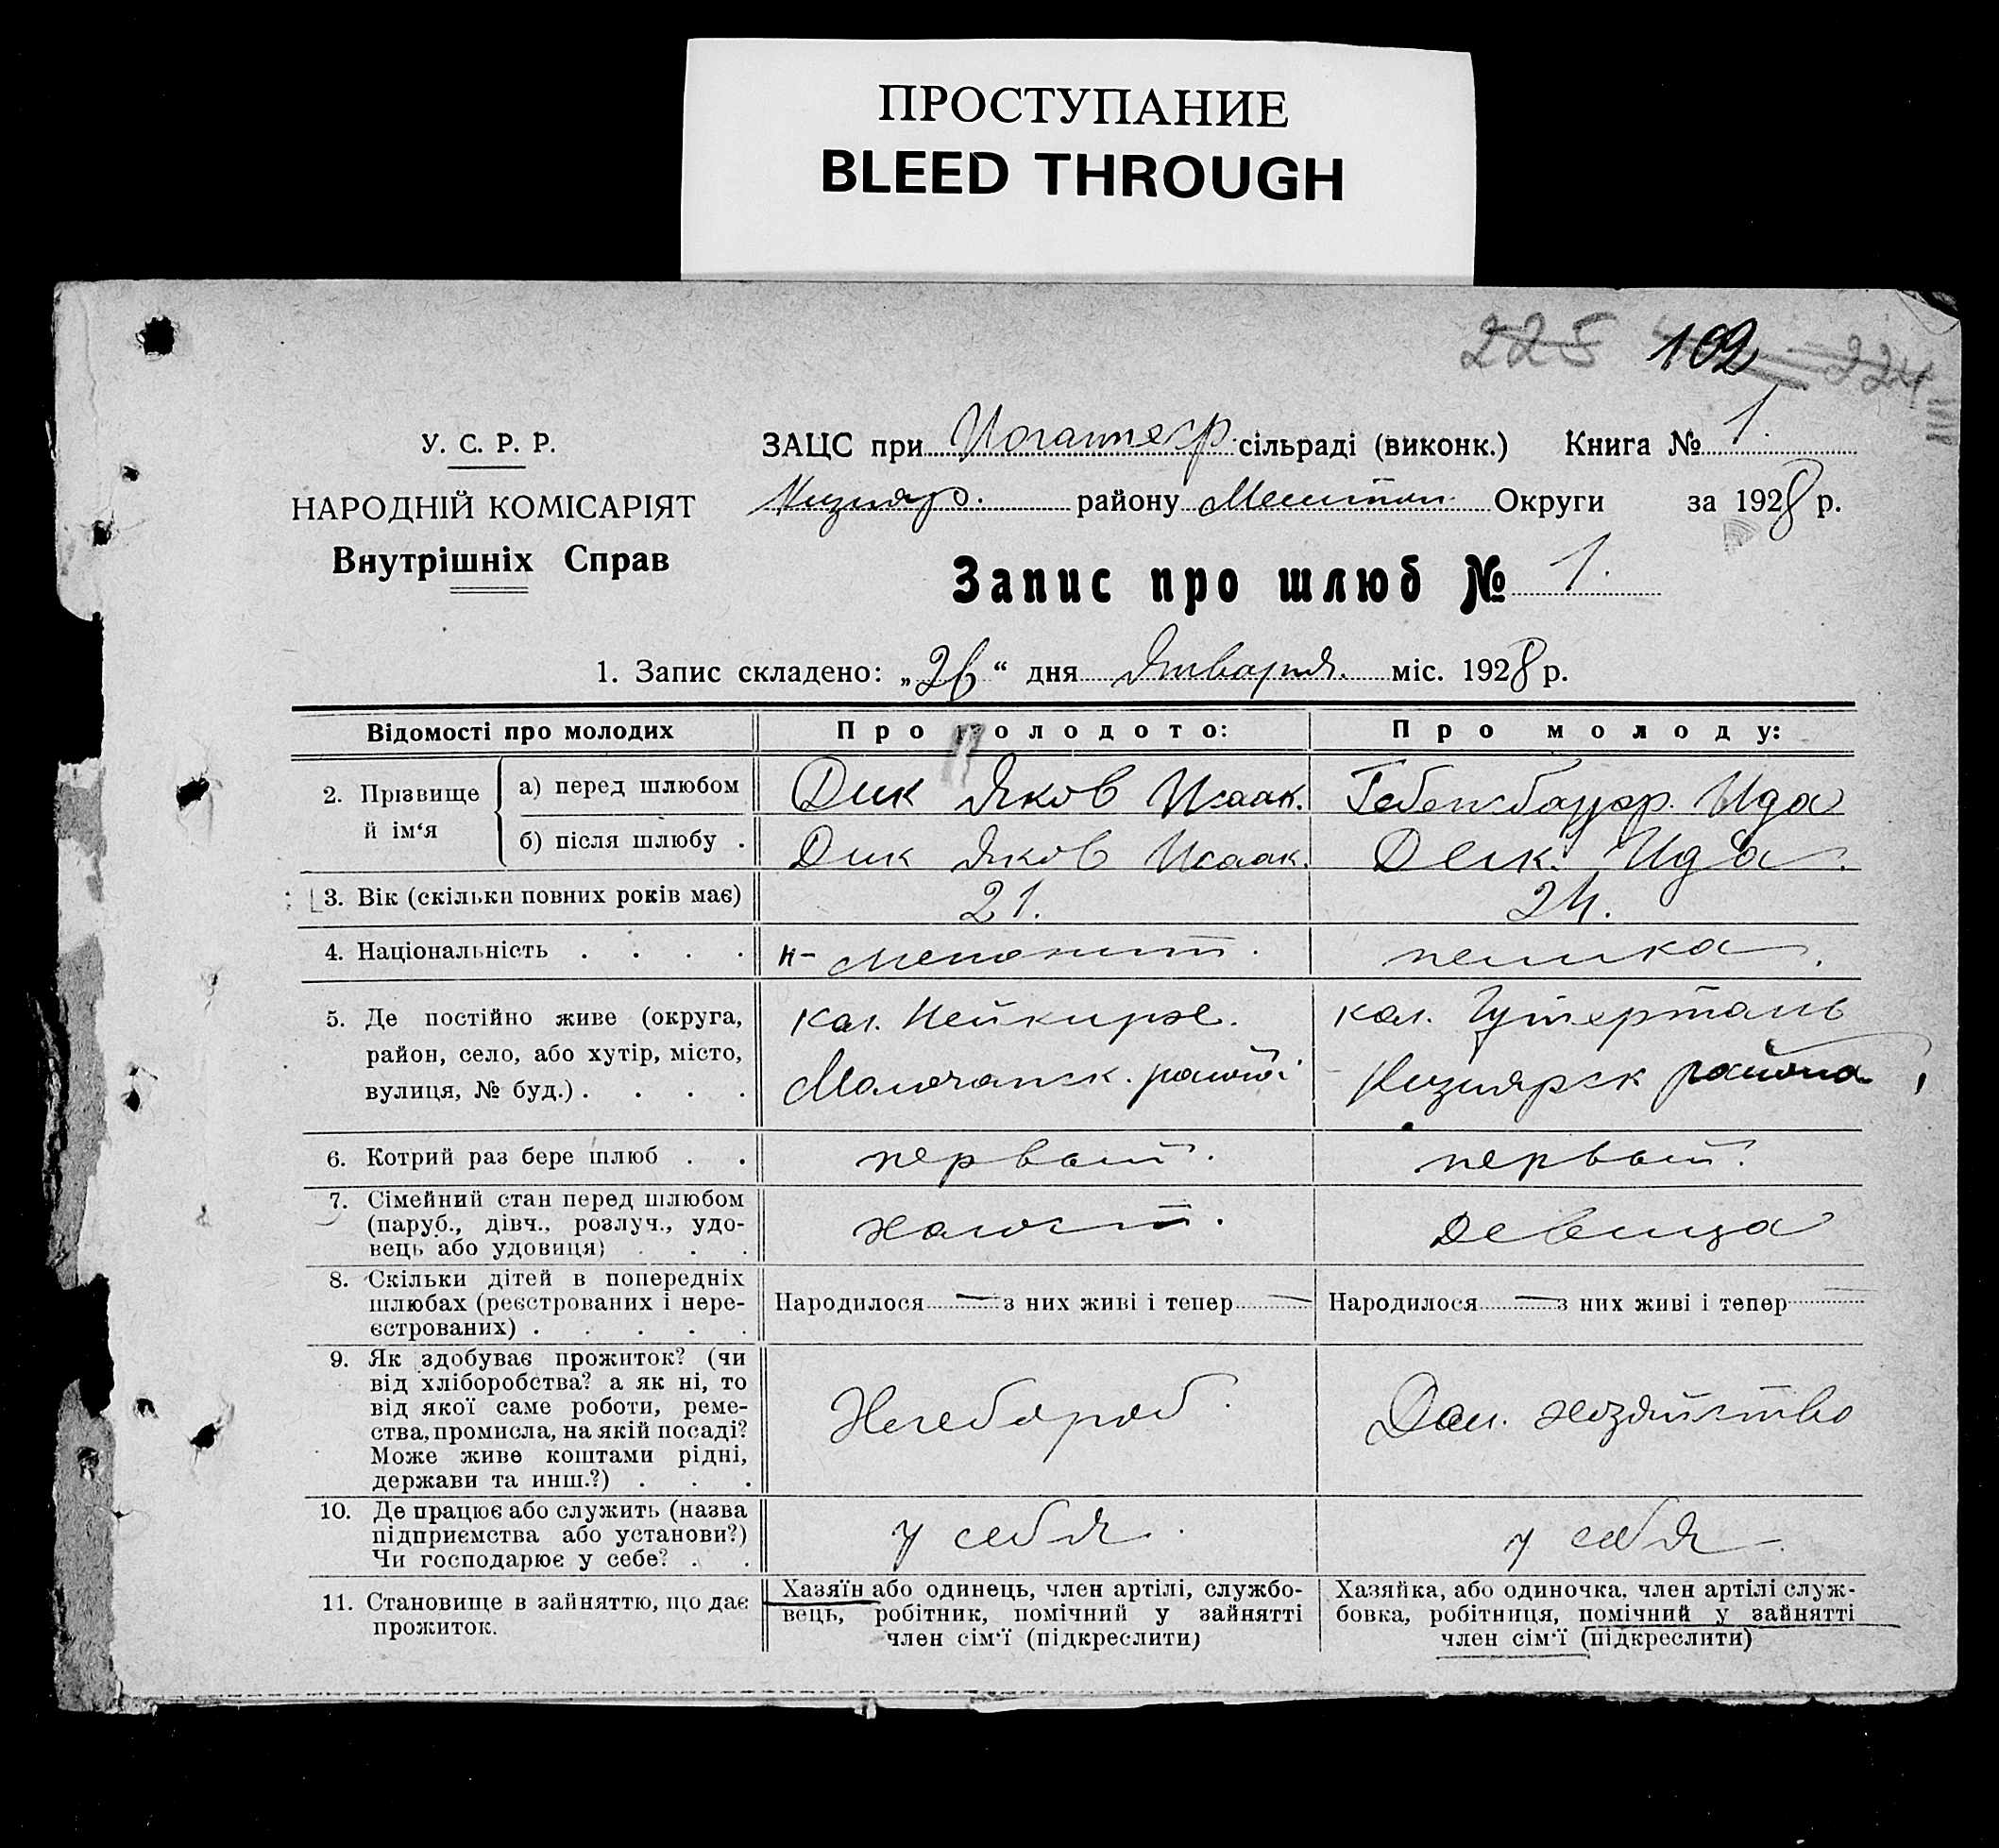 ПРОСТУПАНИЕ
BLEED THROUGH
225 102 224
У. С. Р. Р.
НАРОДНІЙ КОМІСАРІЯТ
Внутрішніх Справ
ЗАЦС при Иоганнеср. сільраді (виконк.) Книга № 1.
Кизияр. району Мелитоп. Округи за 1928 р.
Запис про шлюб № 1.
1. Запис складено: „26“ дня Января. міс. 1928 р.
Відомості про молодих Про молодото: Про молоду:
2. Прізвище й ім‘я
а) перед шлюбом Дик Яков Исаак. Гебенсбауэр. Ида
б) після шлюбу . Дик Яков Исаак. Дик. Ида.
3. Вік (скільки повних років має) 21. 24.
4. Національність . . . . н- менонит. немка.
5. Де постійно живе (округа, район, село, або хутір, місто, вулиця, № буд.) . . . .
кол. Нейкирхе. Молочанск. района
кол. Гутерталь Кизиярск района
6. Котрий раз бере шлюб . . первый. первый.
7. Сімейний стан перед шлюбом (паруб., дівч., розлуч., удовець або удовиця) . . . холост. девица
8. Скільки дітей в попередніх шлюбах (реєстрованих і нереєстрованих) . . . . .
Народилося — з них живі і тепер — Народилося — з них живі і тепер —
9. Як здобуває прожиток? (чи від хліборобства? а як ні, то від якої саме роботи, ремества, промисла, на якій посаді? Може живе коштами рідні, держави та инш.?) . . .
Хлебороб. Дом. хозяйство
10. Де працює або служить (назва підприємства або установи?) Чи господарює у себе? . .
у себя. у себя.
11. Становище в зайняттю, що дає прожиток.
Хазяїн або одинець, член артілі, службовець, робітник, помічний у зайнятті член сім‘ї (підкреслити)
Хазяйка, або одиночка, член артілі службовка, робітниця, помічний у зайнятті член сім‘ї (підкреслити)